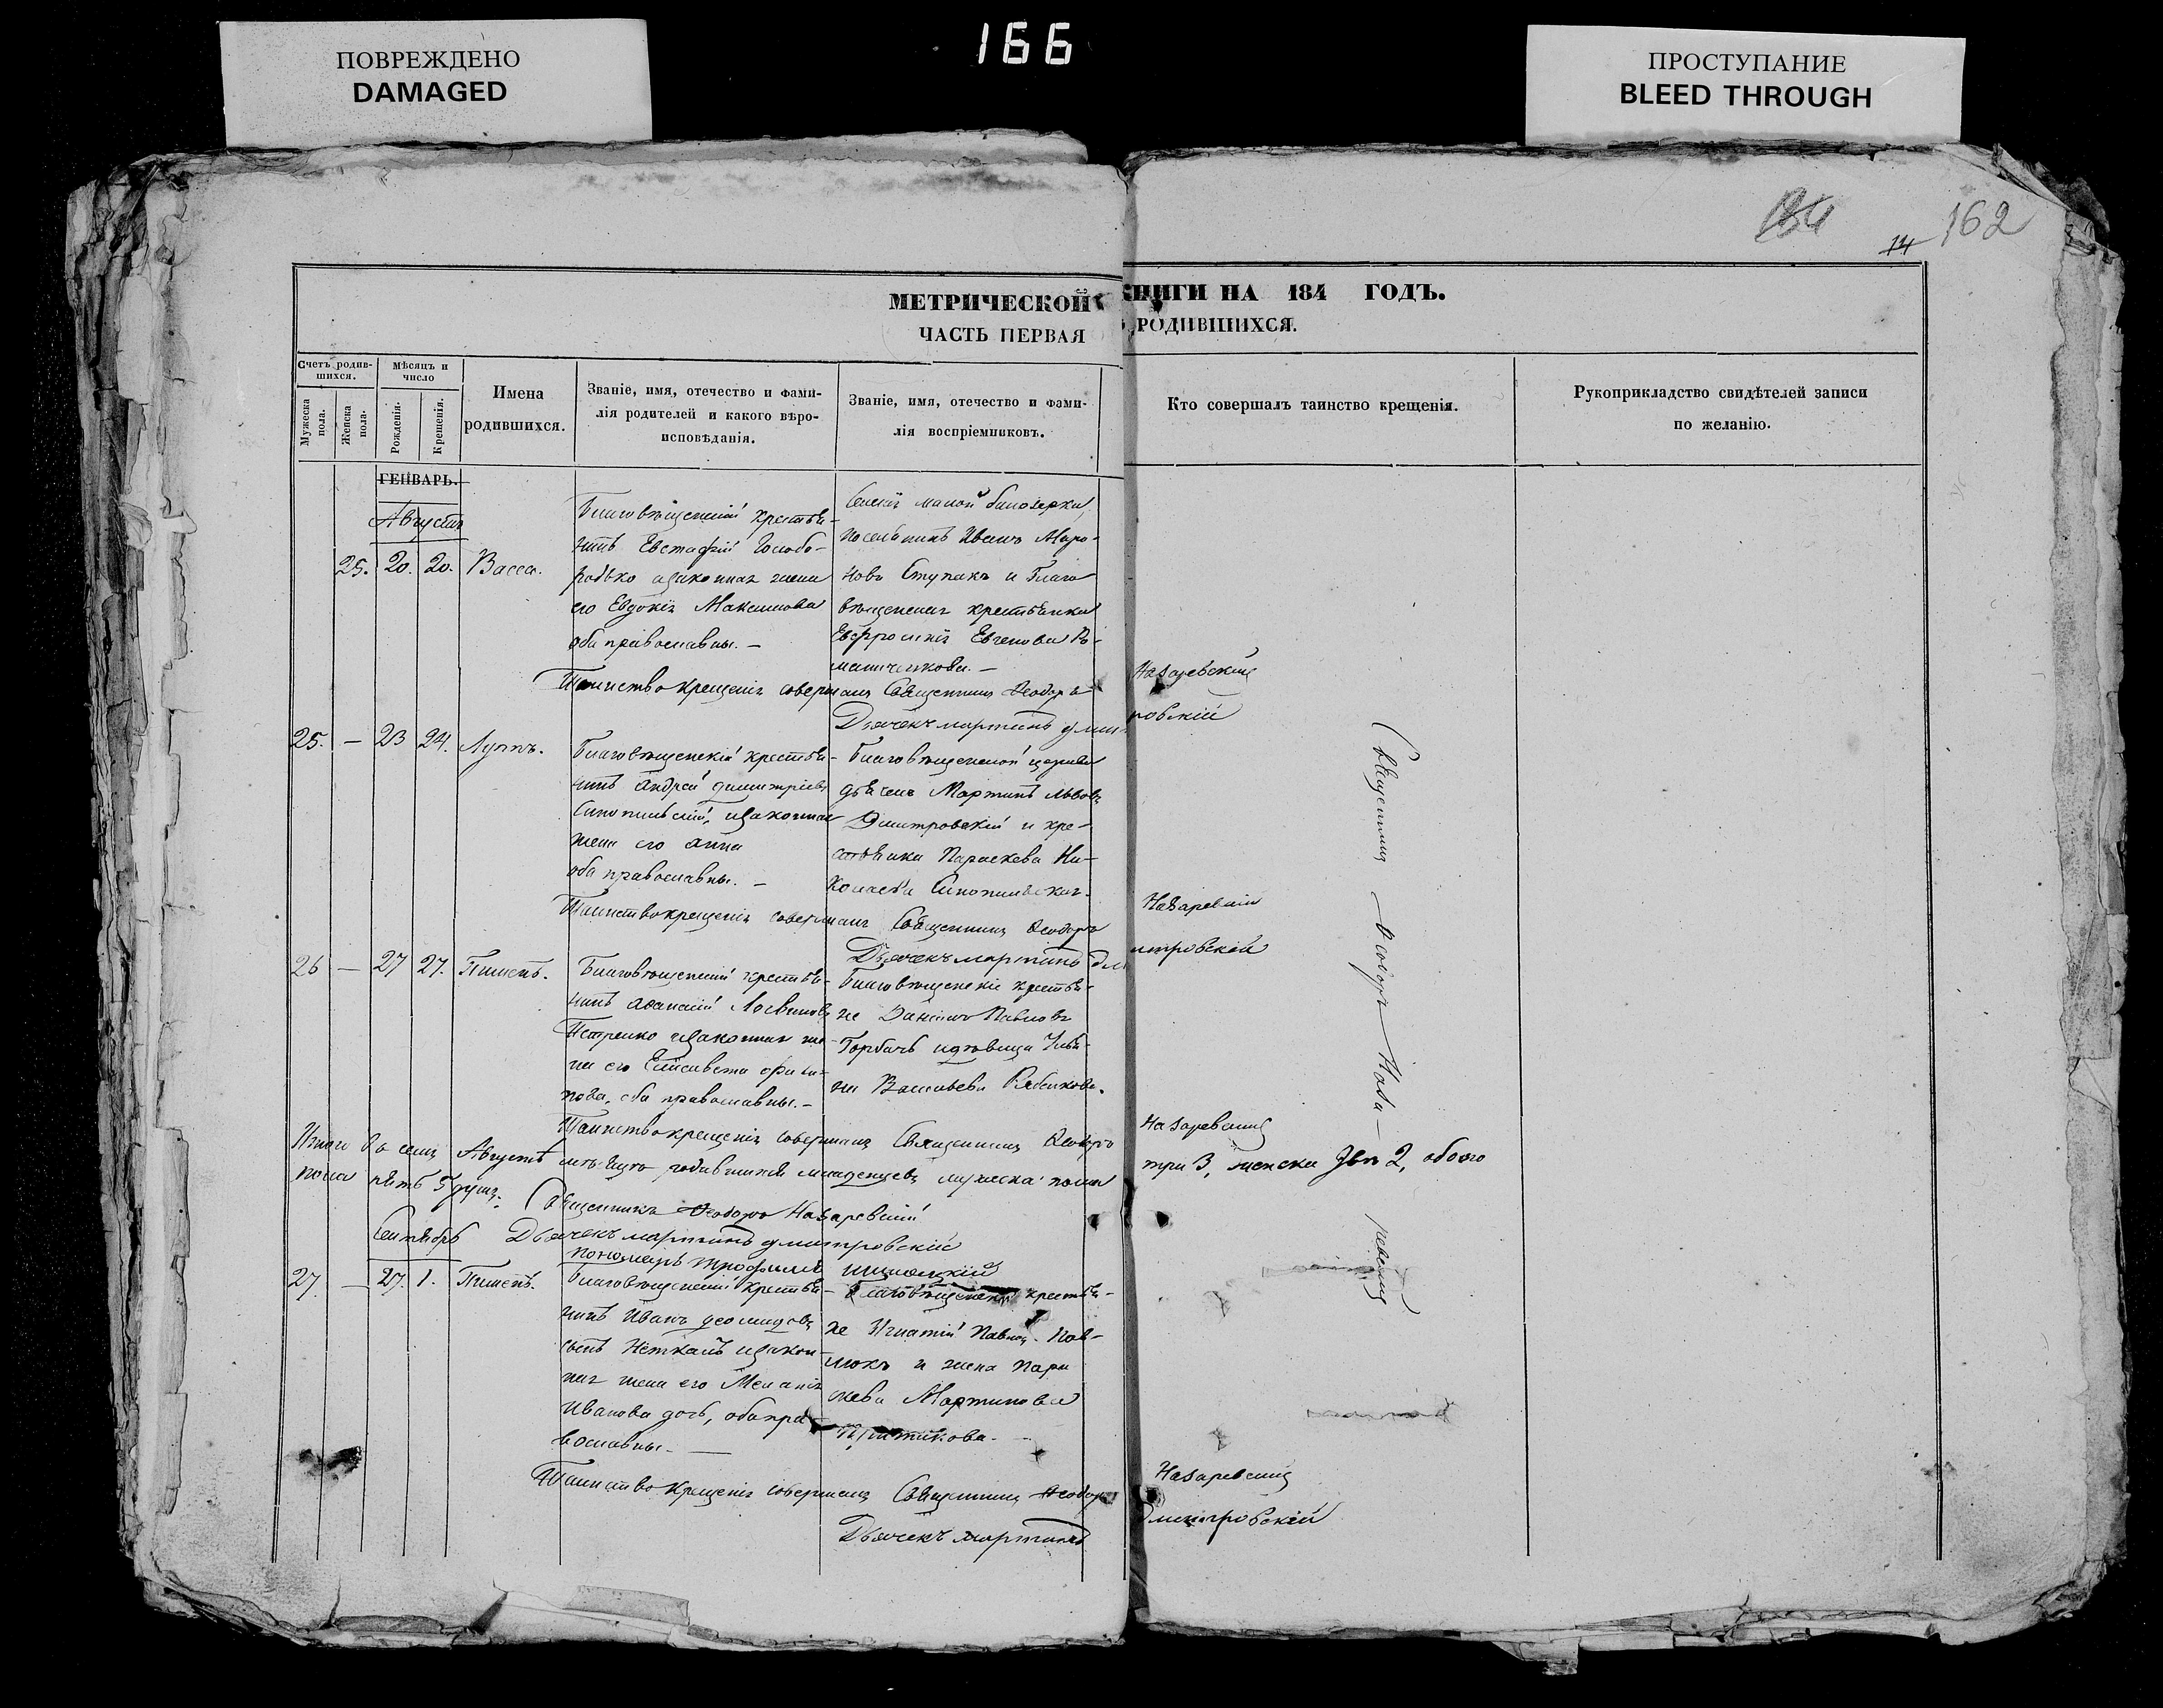 ПОВРЕЖДЕНО
DAMAGED
166
ПРОСТУПАНИЕ
BLEED THROUGH
14
162
МЕТРИЧЕСКОЙ КНИГИ НА 184 ГОДЪ.
ЧАСТЬ ПЕРВАЯ РОДИВШИХСЯ.
Счетъ родив-
шихся.
Мужеска
пола.
Женска
пола.
Мѣсяцъ и
число
Рожденія.
Крещенія.
Имена
родившихся.
Званіе, имя, отечество и фами-
лія родителей и какого вѣро-
исповѣданія.
Званіе, имя, отечество и фами-
лія воспріемниковъ.
Кто совершалъ таинство крещенія.
Рукоприкладство свидѣтелей записи
по желанію.
ГЕНВАРЬ.
Августъ
25. 20. 20. Васса.
Благовѣщенскій крестья-
нинъ Евстафій
родько изаконная жена
его Евдокія Максимова
оба православны. —
малой бѣлозерки
поселянинъ Иванъ Миро-
новъ Ступакъ и Благо
вѣщенская крестьянка
Евфросинія Ро-
маниченкова. —
Таинство крещенія совершалъ Священникъ Ѳеодоръ Назаревскій
Дьячекъ мартинъ дмит ровскій
25. — 23 24. Луппъ.
Благовѣщенскій крестья-
нинъ Андрей димитріевъ
Синопильскій, изаконная
жена его анна
оба православны. —
Благовѣщенской церкви
дьячекъ Мартинъ львовъ
Дмитровскій и кре-
стьянка Параскева Ни-
колаева Синопильская.
Таинство крещенія совершалъ Священникъ Ѳеодоръ Назаревскій
Дьячекъ мартинъ дмитровскій
26 — 27 27. Пименъ.
Благовѣщенскій крестья-
нинъ аѳанасій Логвиновъ
Петренко изаконная же-
на его Елисавета фили-
пова, оба православны. —
Благовѣщенскіе крестья-
не Даніилъ Павловъ
Горбачь идѣвица Улья-
на Васильева Рябикова.
Таинство крещенія совершалъ Священникъ Ѳеодоръ Назаревскій
Итого во семъ Августѣ мѣсяцѣ родившихся младенцевъ мужеска пола три 3, женска две 2, обоего
пола пять 5 душъ. Священникъ Ѳеодоръ Назаревскій
Сентябрь Дьячекъ мартинъ дмитровскій
пономарь трофимъ
27. — 27. 1. Пименъ.
Благовѣщенскій крестья-
нинъ Иванъ деомидовъ
сынъ Неткалъ изакон-
ная жена его Меланія
Иванова дочь, оба пра-
вославны. —
Благовѣщенскіе крестья-
не Игнатій Павлов. Пав-
люкъ и жена Пара
скева Мартинова
Таинство крещенія совершалъ Священникъ Ѳеодоръ Назаревскій
Дьячекъ мартинъ дмитровскій
Священникъ Ѳеодоръ Наза-
ревскій